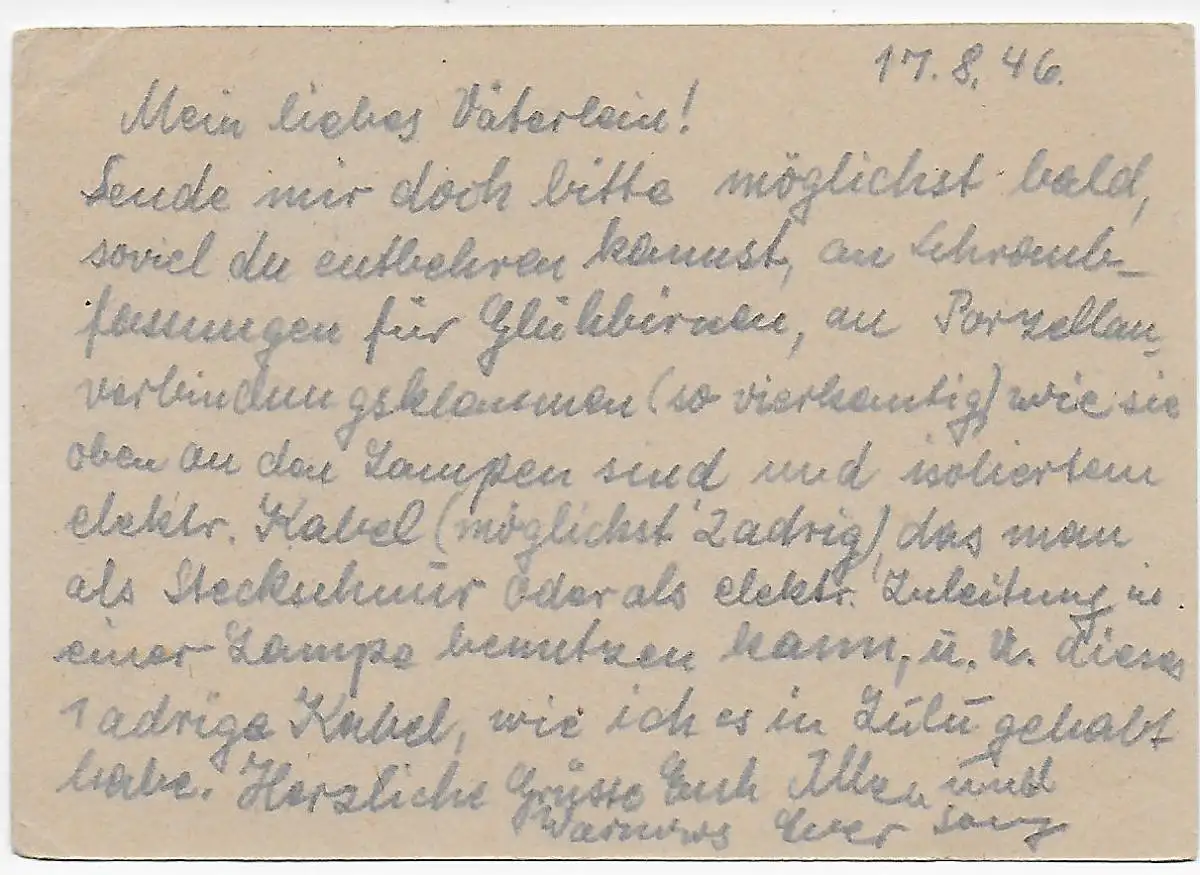 17. 8. 46.
Mein liebes Väterlein!
Sende mir doch bitte möglichst bald,
soviel du entbehren kannst, an Schraub-
fassungen für Glühbirnen, an Porzellan-
verbindungsklammen (so vierkantig) wie sie
oben an den Lampen sind und isoliertem
elektr. Kabel (möglichst 2adrig), das man
als Steckschnur oder als elektr. Zuleitung in
einer Lampe benutzen kann, u. U. dieses
1adrige Kabel, wie ich es in Lulu gehabt
habe. Herzliche Grüsse Euch Allen und
Euer